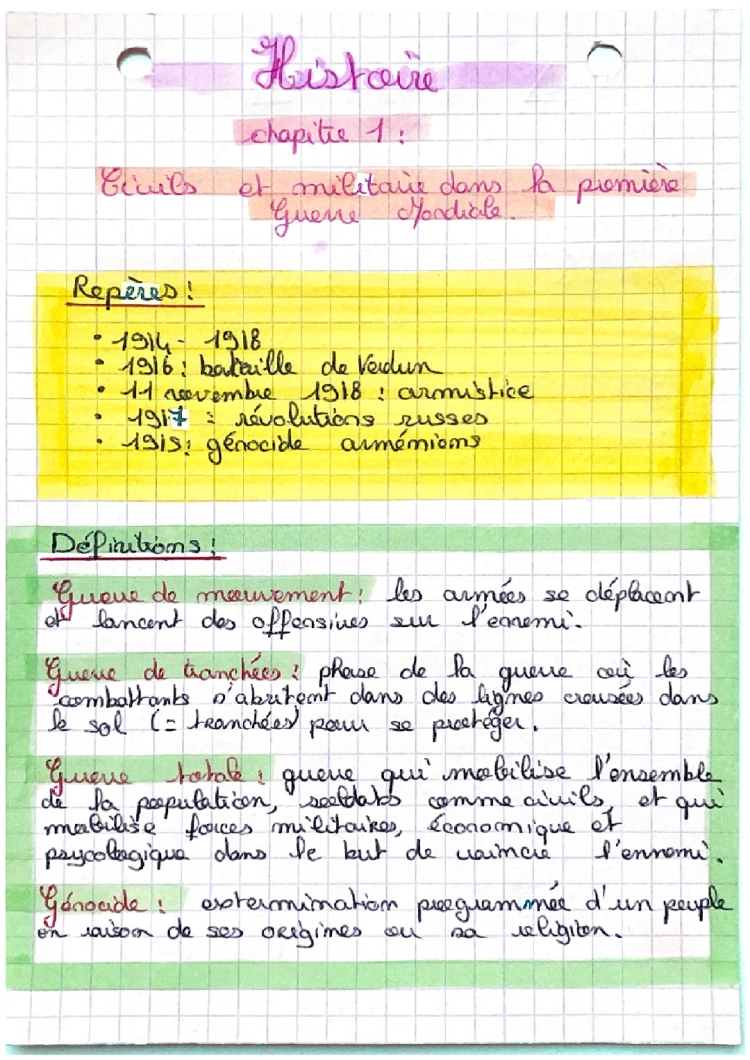 Histoire
chapitre 1 :
Civils et militaire dans la première
Guerre Mondiale.
Repères :
• 1914 - 1918
• 1916 : bataille de Verdun
• 11 novembre 1918 : armistice
• 1917 : révolutions russes
• 1915 : génocide arméniens
Définitions :
Guerre de mouvement : les armées se déplacent
et lancent des offensives sur l'ennemi.
Guerre de tranchées : phase de la guerre où les
combattants s'abritent dans des lignes creusées dans
le sol (= tranchées) pour se protéger.
Guerre totale : guerre qui mobilise l'ensemble
de la population, soldats comme civils, et qui
mobilise forces militaires, économique et
psycologique dans le but de vaincre l'ennemi.
Génocide : extermination programmée d'un peuple
en raison de ses origines ou sa religiton.